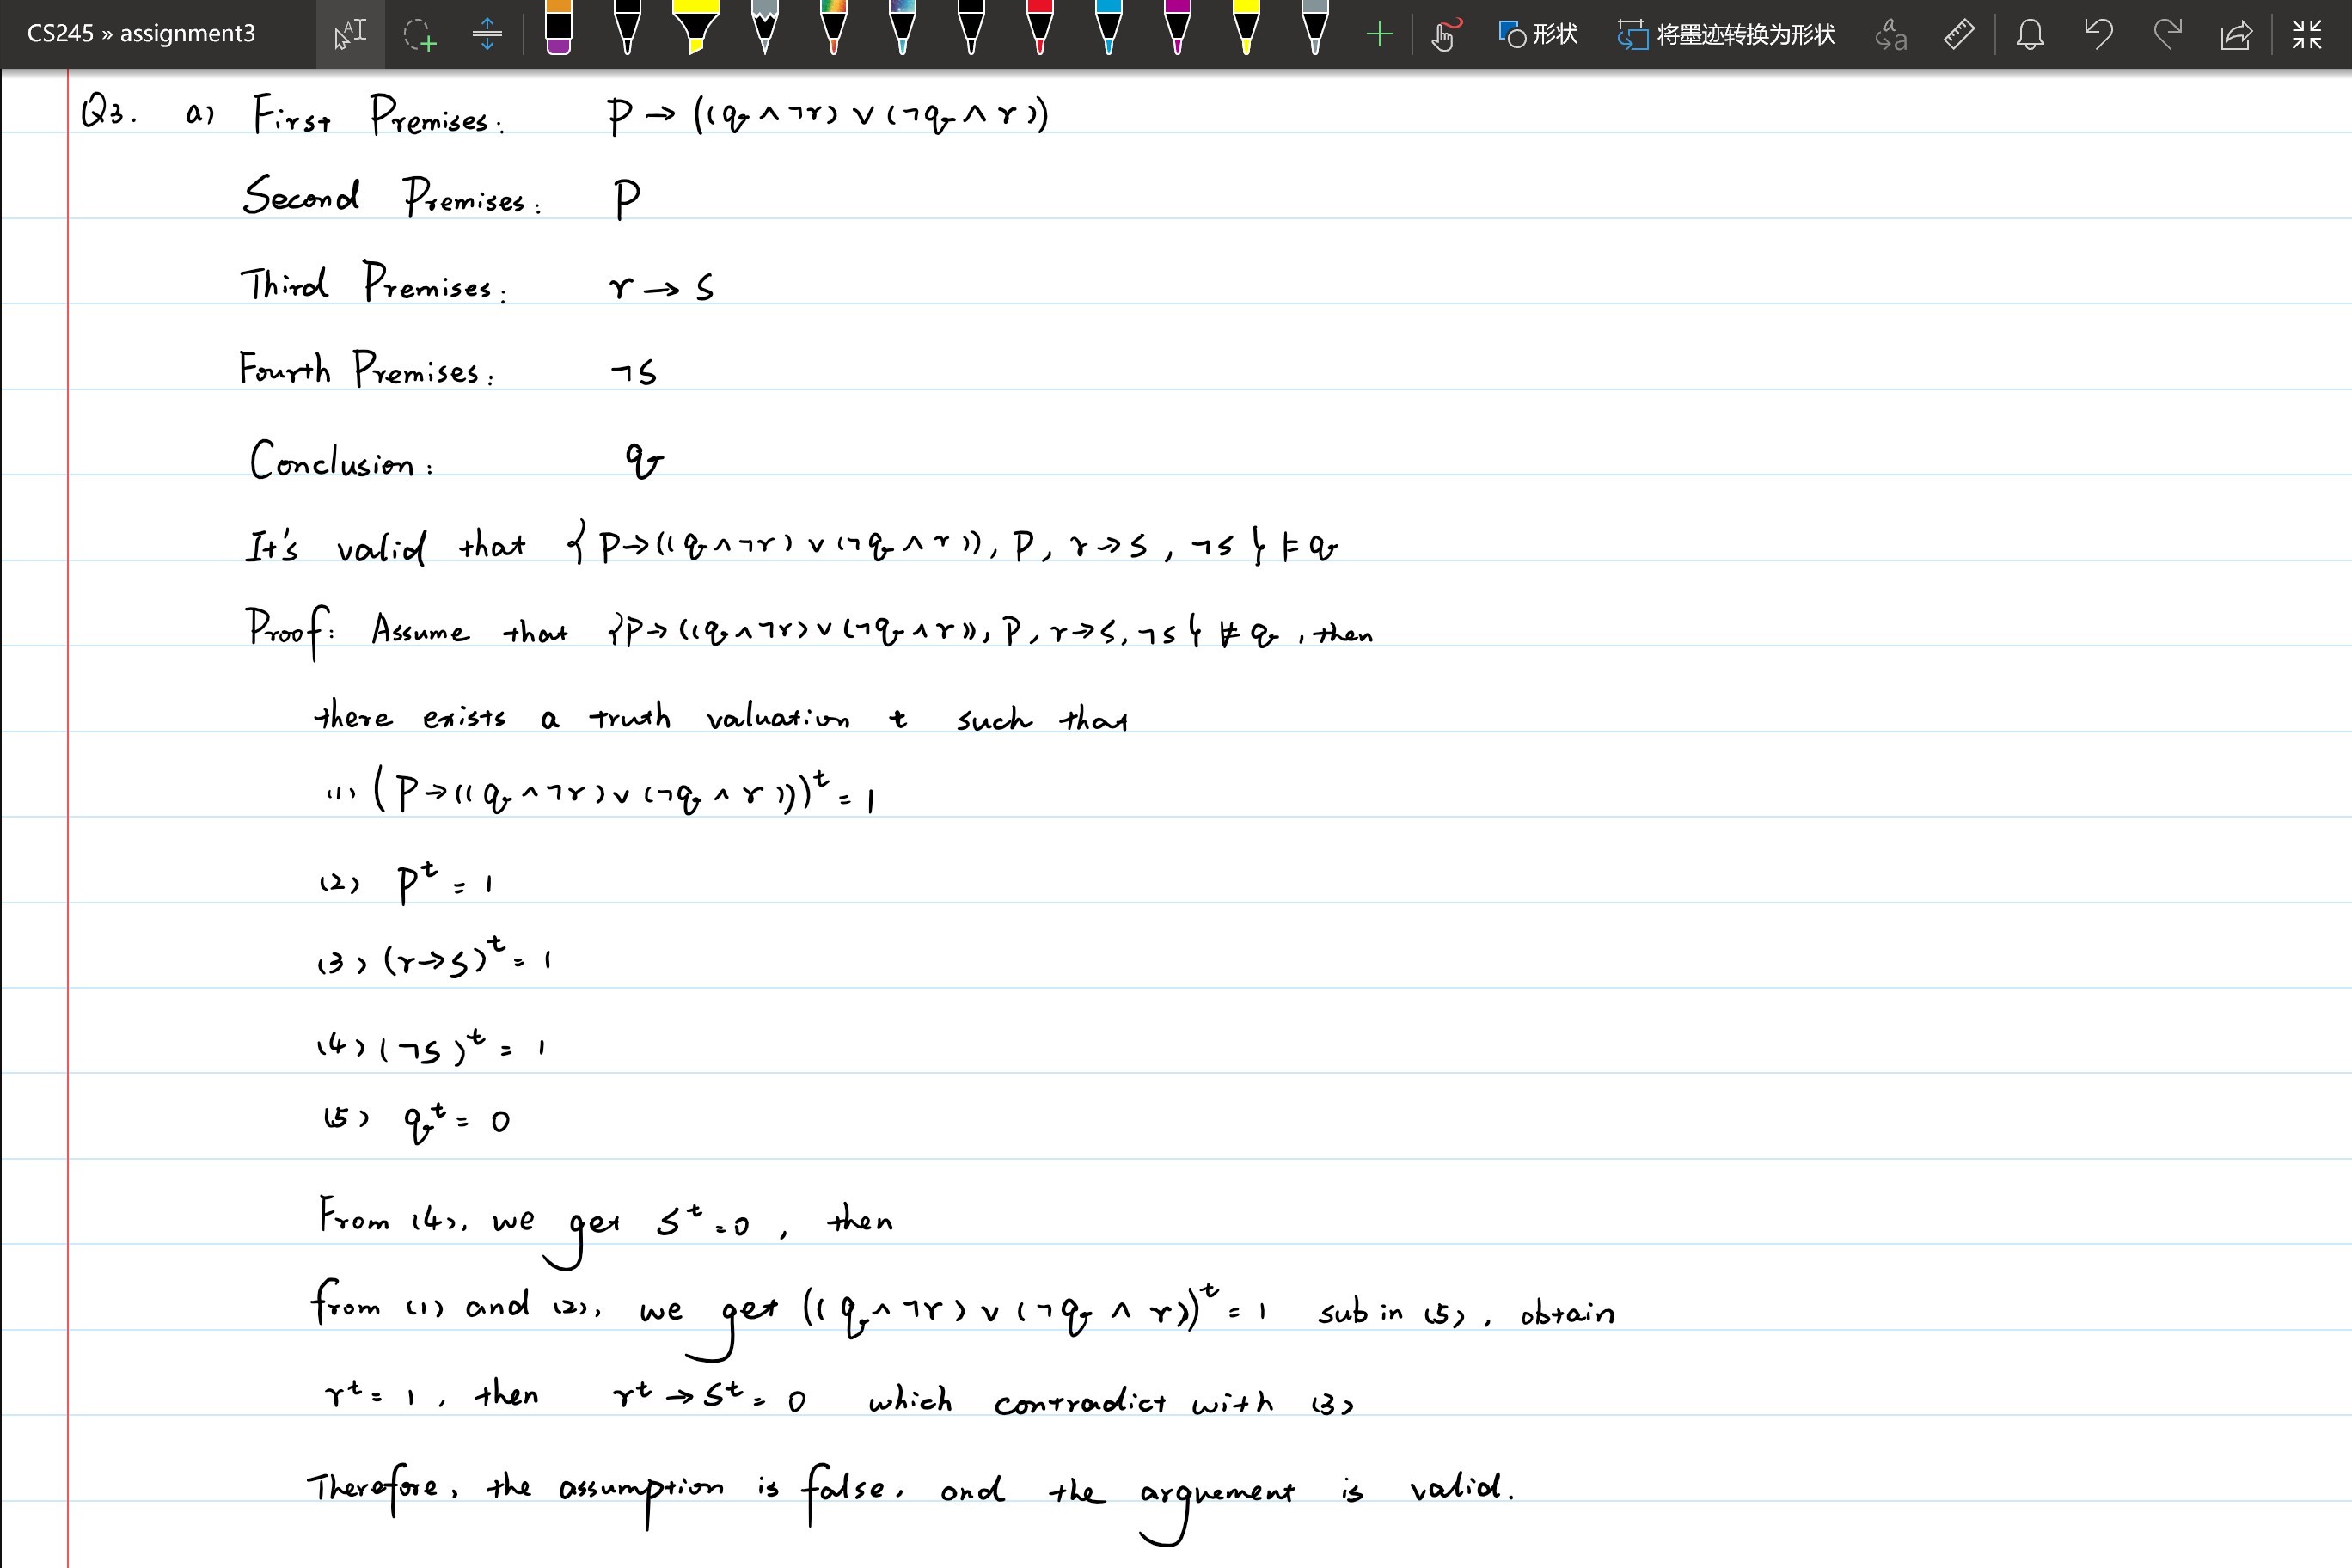 CS245 » assignment3 形状 将墨迹转换为形状
Q3. a) First Premises: P → ((q ∧ ¬r) ∨ (¬q ∧ r))
Second Premises: P
Third Premises: r → s
Fourth Premises: ¬s
Conclusion: q
It's valid that { P → ((q ∧ ¬r) ∨ (¬q ∧ r)), P, r → s, ¬s } ⊨ q
Proof: Assume that {P → ((q ∧ ¬r) ∨ (¬q ∧ r)), P, r → s, ¬s } ⊭ q, then
there exists a truth valuation t such that
(1) (P → ((q ∧ ¬r) ∨ (¬q ∧ r)))^t = 1
(2) P^t = 1
(3) (r → s)^t = 1
(4) (¬s)^t = 1
(5) q^t = 0
From (4), we get s^t = 0, then
from (1) and (2), we get ((q ∧ ¬r) ∨ (¬q ∧ r))^t = 1 sub in (5), obtain
r^t = 1, then r^t → s^t = 0 which contradict with (3)
Therefore, the assumption is false, and the arguement is valid.